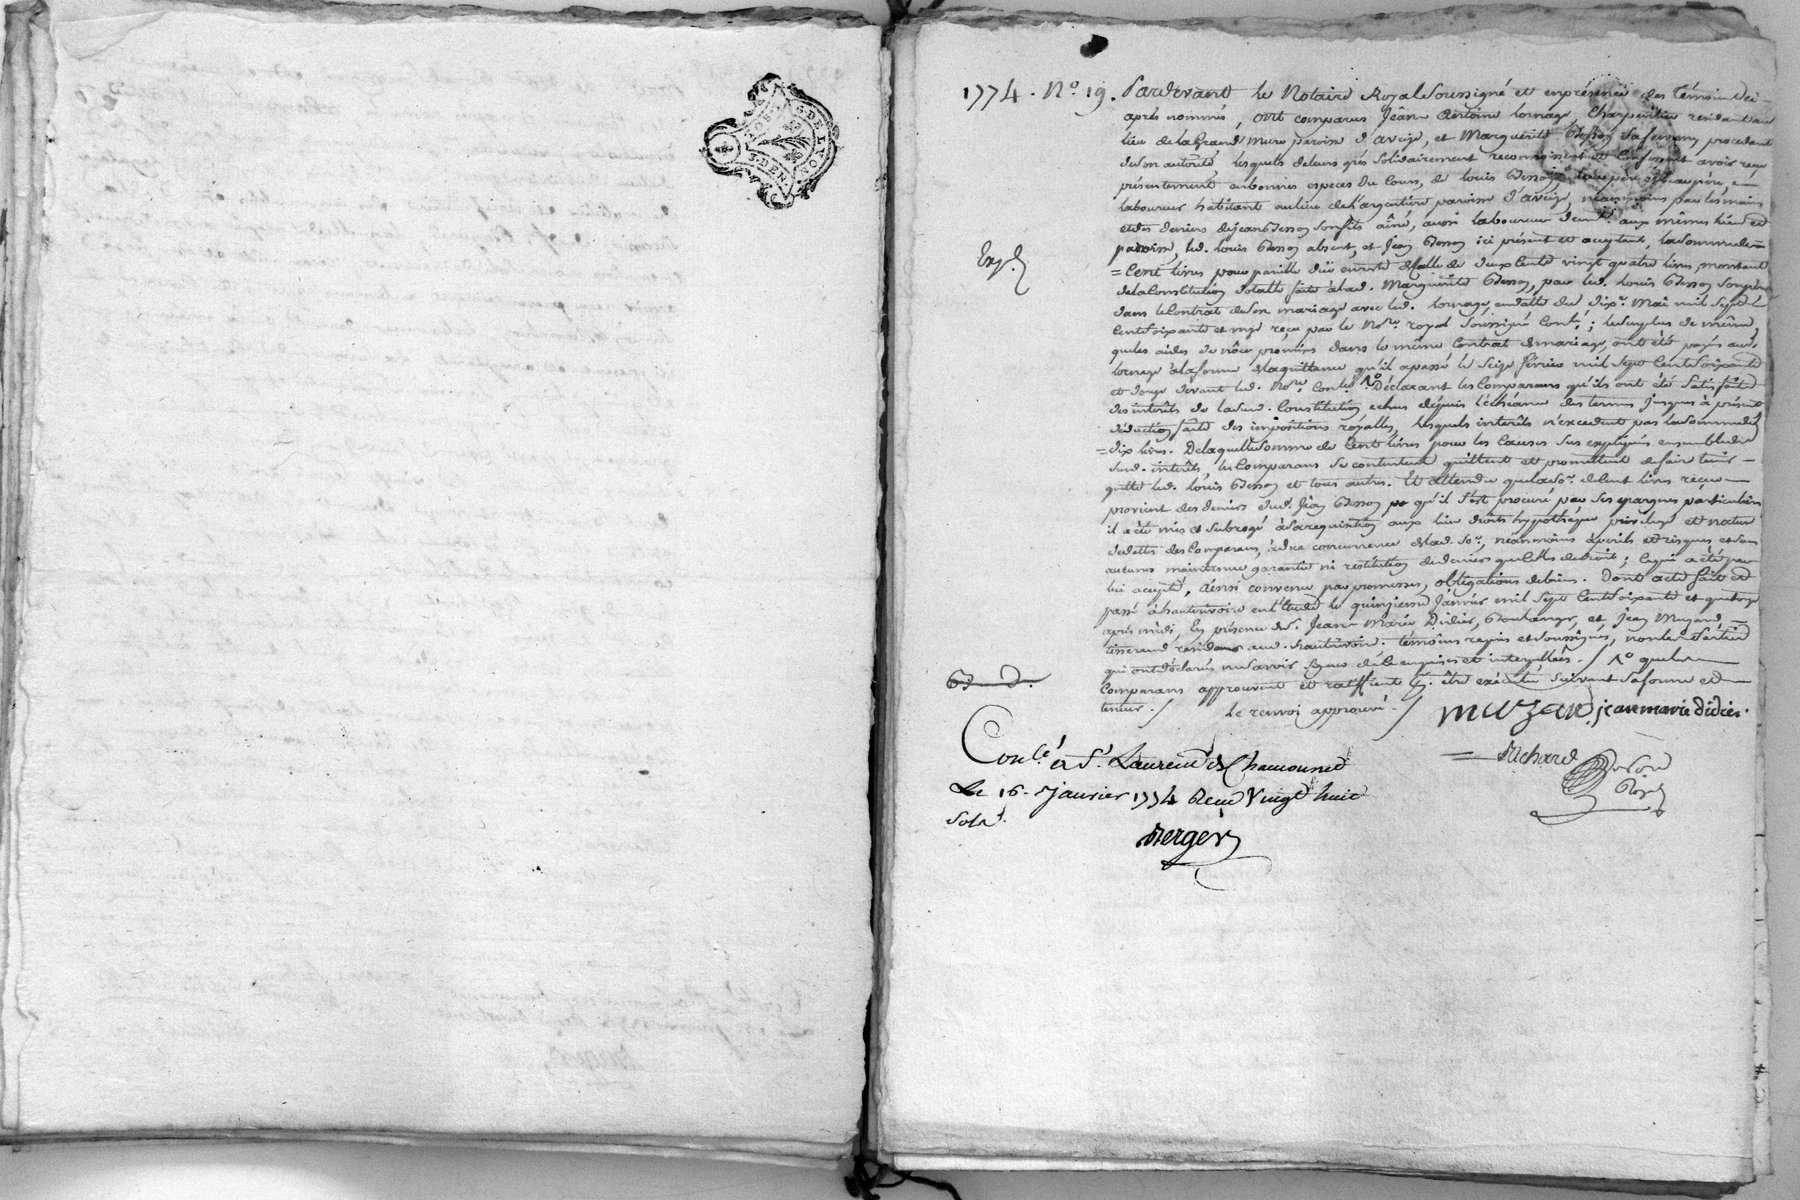 G. DE LYON
3. DEN
1774. No. 19. Pardevant le Notaire Royal Soussigné et en présence des témoins ci-
après nommés, ont comparus Jean Antoine Lornage, Charpentier residant au
lieu de la Grand Mure paroisse d'aveize, et Marguerite Besson sa femme, procedant
de son autorité, lesquels de leurs grés solidairement reconnoissent et confessent avoir reçu
présentement en bonnes especes du Cours, de louis Besson leur père et beaupère,
laboureur habitant au lieu de l'argentiere paroisse d'aveize, néanmoins par les mains
et des deniers de jean Besson son fils aîné, aussi laboureur demt. aux mêmes lieu et
paroisse, led. louis Besson absent, et Jean Besson ici présent et acceptant, la somme de
Exp.
= Cent livres pour pareille due en reste de celle de deux Cents vingt quatre livres montant
de la Constitution dotalle faite à lad. Marguerite Besson, par led. louis Besson son père
dans le Contrat de son mariage avec led. lornage, en datte du dix Mai mil sept
Cent soixante et onze reçu par le Nore. royal soussigné Conlé.; le surplus de même,
que les aides de nôce promises dans le même Contrat de mariage, ont été payés aud.
lornage à la forme de la quittance qu'il a passé le seize février mil sept Cent soixante
et douze devant led. Nore. Conlée. Déclarant les Comparans qu'ils ont été satisfaits
des intérêts de lad. Constitution echus depuis l'échéance des termes jusques à présent
déduction faite des impositions royalles, lesquels intérêts n'excedent pas la somme de
= dix livres. De laquelle somme de Cent livres pour les Causes sus expliquées ensemble des
susd. intérêts, les Comparans se contentent quittent et promettent de faire tenir
quitte led. louis Besson et tous autres. Et attendu que la so. de Cent livres reçue
provient des deniers dud. Jean Besson qu'il s'est procuré par ses epargnes particulieres
il a été mis et subrogé à sa requisition aux lieu droits hypothèque privilege et nature
de dette des Comparans, à due concurrence de lad. so., néanmoins à perils et risques et sans
autre maintenue garantie ni restitution de deniers que celle de droit; ce qui a été par
lui accepté, Ainsi convenu par promesses, obligations de biens. Dont acte fait et
passé à hauterivoire en l'Etude le quinzieme Janvier mil sept Cent soixante et quatorze
après midi, En présence de S. Jean Marie Didier, Boulanger, et Jean Muzard
tisserand residans aud. hauterivoire, témoins requis et soussignés, non les parties
qui ont déclarés ne savoir signer de ce enquises et interpellées. / 1o que les
Comparans approuvent et ratiffient être exécutée suivant sa forme et
teneur. / le renvoi approuvé. /
muzard jean marie didier
Richard
Conlé. à St. Laurent de Chamousset
Le 16. Janvier 1774 Reçu Vingt huit
sols.
Berger